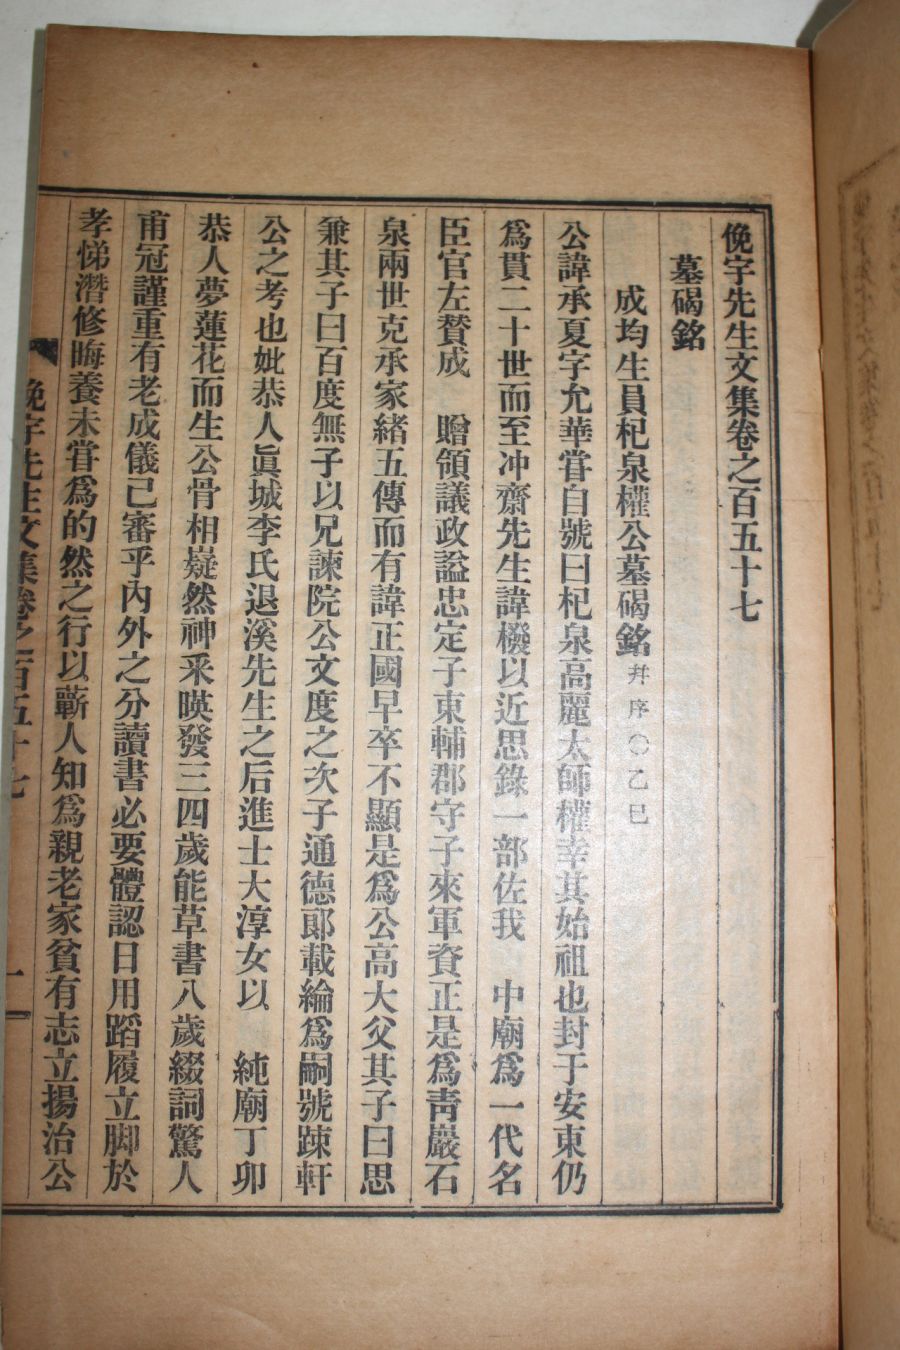 俛宇先生文集卷之百五十七
墓碣銘
成均生員杞泉權公墓碣銘 幷序○乙巳
公諱承夏字允華嘗自號曰杞泉高麗太師權幸其始祖也封于安東仍
爲貫二十世而至冲齋先生諱橃以近思錄一部佐我 中廟爲一代名
臣官左贊成 贈領議政謚忠定子東輔郡守子來軍資正是爲靑巖石
泉兩世克承家緖五傳而有諱正國早卒不顯是爲公高大父其子曰思
兼其子曰百度無子以兄諫院公文度之次子通德郞載綸爲嗣號踈軒
公之考也妣恭人眞城李氏退溪先生之后進士大淳女以 純廟丁卯
恭人夢蓮花而生公骨相嶷然神采暎發三四歲能草書八歲綴詞驚人
甫冠謹重有老成儀已審乎內外之分讀書必要體認日用蹈履立脚於
孝悌潛修晦養未甞爲的然之行以蘄人知爲親老家貧有志立揚治公
俛宇先生文集卷之百五十七 一